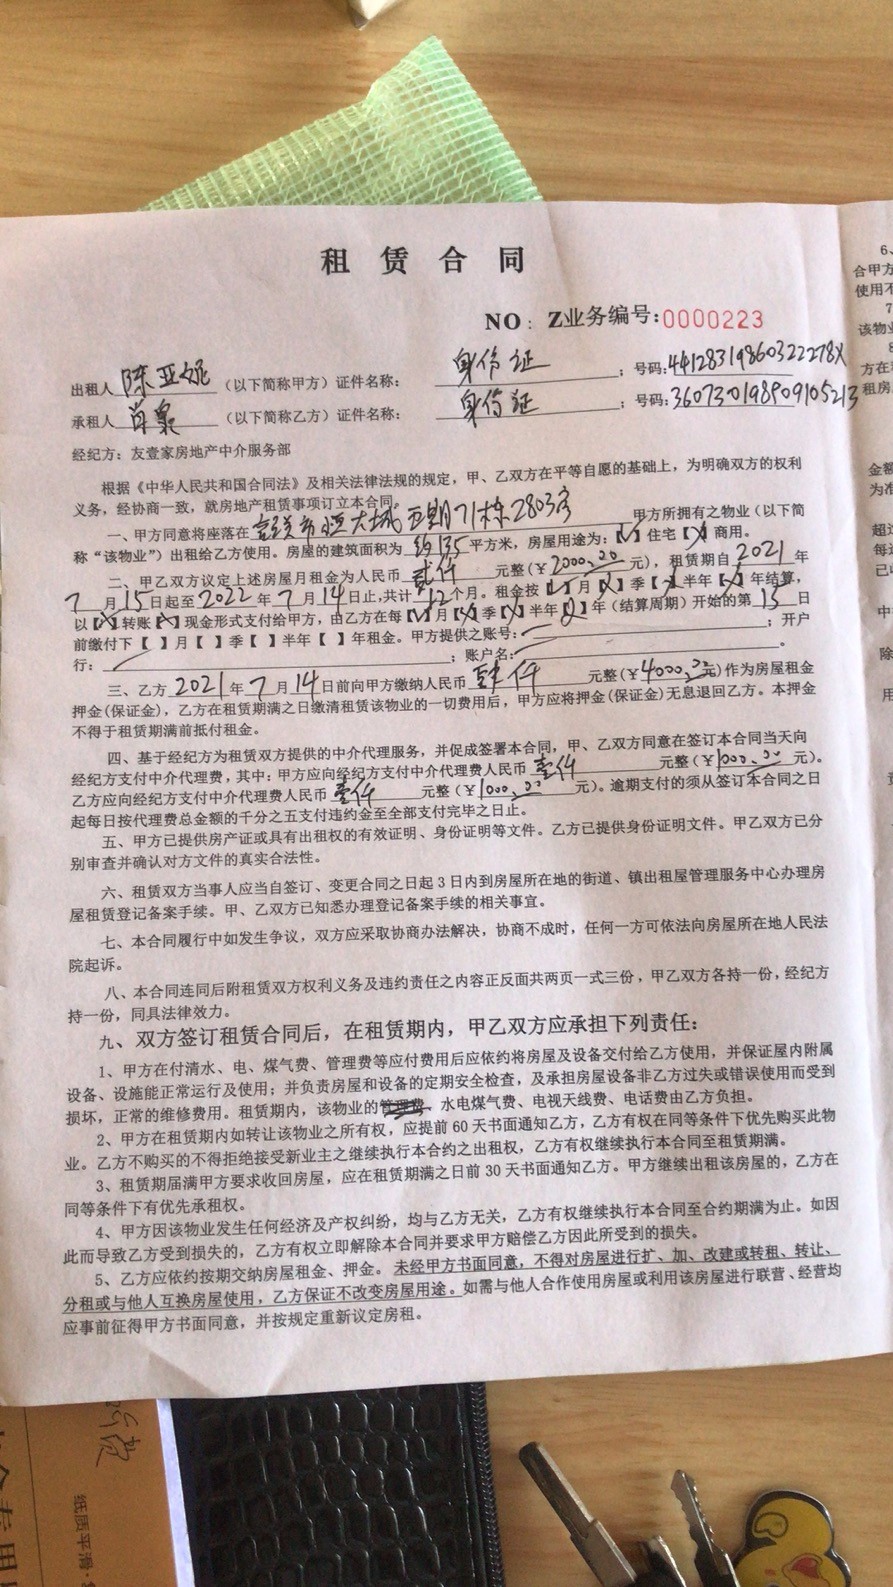 租赁合同
NO: Z业务编号:0000223
出租人 陈亚妮 (以下简称甲方) 证件名称: 身份证 ; 号码:
承租人 肖 (以下简称乙方) 证件名称: 身份证 ; 号码:
经纪方: 友壹家房地产中介服务部
根据《中华人民共和国合同法》及相关法律法规的规定，甲、乙双方在平等自愿的基础上，为明确双方的权利
义务，经协商一致，就房地产租赁事项订立本合同。
一、甲方同意将座落在 恒大城五期71栋2803房 甲方所拥有之物业（以下简
称“该物业”）出租给乙方使用。房屋的建筑面积为 约135 平方米，房屋用途为：【 】住宅【 】商用。
二、甲乙双方议定上述房屋月租金为人民币 贰仟 元整（￥2000.00 元），租赁期自 2021 年
7 月 15 日起至 2022 年 7 月 14 日止，共计 12 个月。租金按【 】月【 】季【 】半年【 】年结算，
以【 】转账【 】现金形式支付给甲方，由乙方在每【 】月【 】季【 】半年【 】年（结算周期）开始的第 15 日
前缴付下【 】月【 】季【 】半年【 】年租金。甲方提供之账号: ; 开户
行: ; 账户名: 。
三、乙方 2021 年 7 月 14 日前向甲方缴纳人民币 肆仟 元整（￥4000.00 元）作为房屋租金
押金(保证金)，乙方在租赁期满之日缴清租赁该物业的一切费用后，甲方应将押金(保证金)无息退回乙方。本押金
不得于租赁期满前抵付租金。
四、基于经纪方为租赁双方提供的中介代理服务，并促成签署本合同，甲、乙双方同意在签订本合同当天向
经纪方支付中介代理费，其中：甲方应向经纪方支付中介代理费人民币 壹仟 元整（￥1000.00 元）。
乙方应向经纪方支付中介代理费人民币 壹仟 元整（￥1000.00 元）。逾期支付的须从签订本合同之日
起每日按代理费总金额的千分之五支付违约金至全部支付完毕之日止。
五、甲方已提供房产证或具有出租权的有效证明、身份证明等文件。乙方已提供身份证明文件。甲乙双方已分
别审查并确认对方文件的真实合法性。
六、租赁双方当事人应当自签订、变更合同之日起 3 日内到房屋所在地的街道、镇出租屋管理服务中心办理房
屋租赁登记备案手续。甲、乙双方已知悉办理登记备案手续的相关事宜。
七、本合同履行中如发生争议，双方应采取协商办法解决，协商不成时，任何一方可依法向房屋所在地人民法
院起诉。
八、本合同连同后附租赁双方权利义务及违约责任之内容正反面共两页一式三份，甲乙双方各持一份，经纪方
持一份，同具法律效力。
九、双方签订租赁合同后，在租赁期内，甲乙双方应承担下列责任：
1、甲方在付清水、电、煤气费、管理费等应付费用后应依约将房屋及设备交付给乙方使用，并保证屋内附属
设备、设施能正常运行及使用；并负责房屋和设备的定期安全检查，及承担房屋设备非乙方过失或错误使用而受到
损坏，正常的维修费用。租赁期内，该物业的管理费、水电煤气费、电视天线费、电话费由乙方负担。
2、甲方在租赁期内如转让该物业之所有权，应提前 60 天书面通知乙方，乙方有权在同等条件下优先购买此物
业。乙方不购买的不得拒绝接受新业主之继续执行本合约之出租权，乙方有权继续执行本合同至租赁期满。
3、租赁期届满甲方要求收回房屋，应在租赁期满之日前 30 天书面通知乙方。甲方继续出租该房屋的，乙方在
同等条件下有优先承租权。
4、甲方因该物业发生任何经济及产权纠纷，均与乙方无关，乙方有权继续执行本合同至合约期满为止。如因
此而导致乙方受到损失的，乙方有权立即解除本合同并要求甲方赔偿乙方因此所受到的损失。
5、乙方应依约按期交纳房屋租金、押金。未经甲方书面同意，不得对房屋进行扩、加、改建或转租、转让、
分租或与他人互换房屋使用，乙方保证不改变房屋用途。如需与他人合作使用房屋或利用该房屋进行联营、经营均
应事前征得甲方书面同意，并按规定重新议定房租。
6、
合甲方
使用不
7
该物业
8
方在
租房
金额
为准
超过
每
已
中
除
用
纸质平滑·